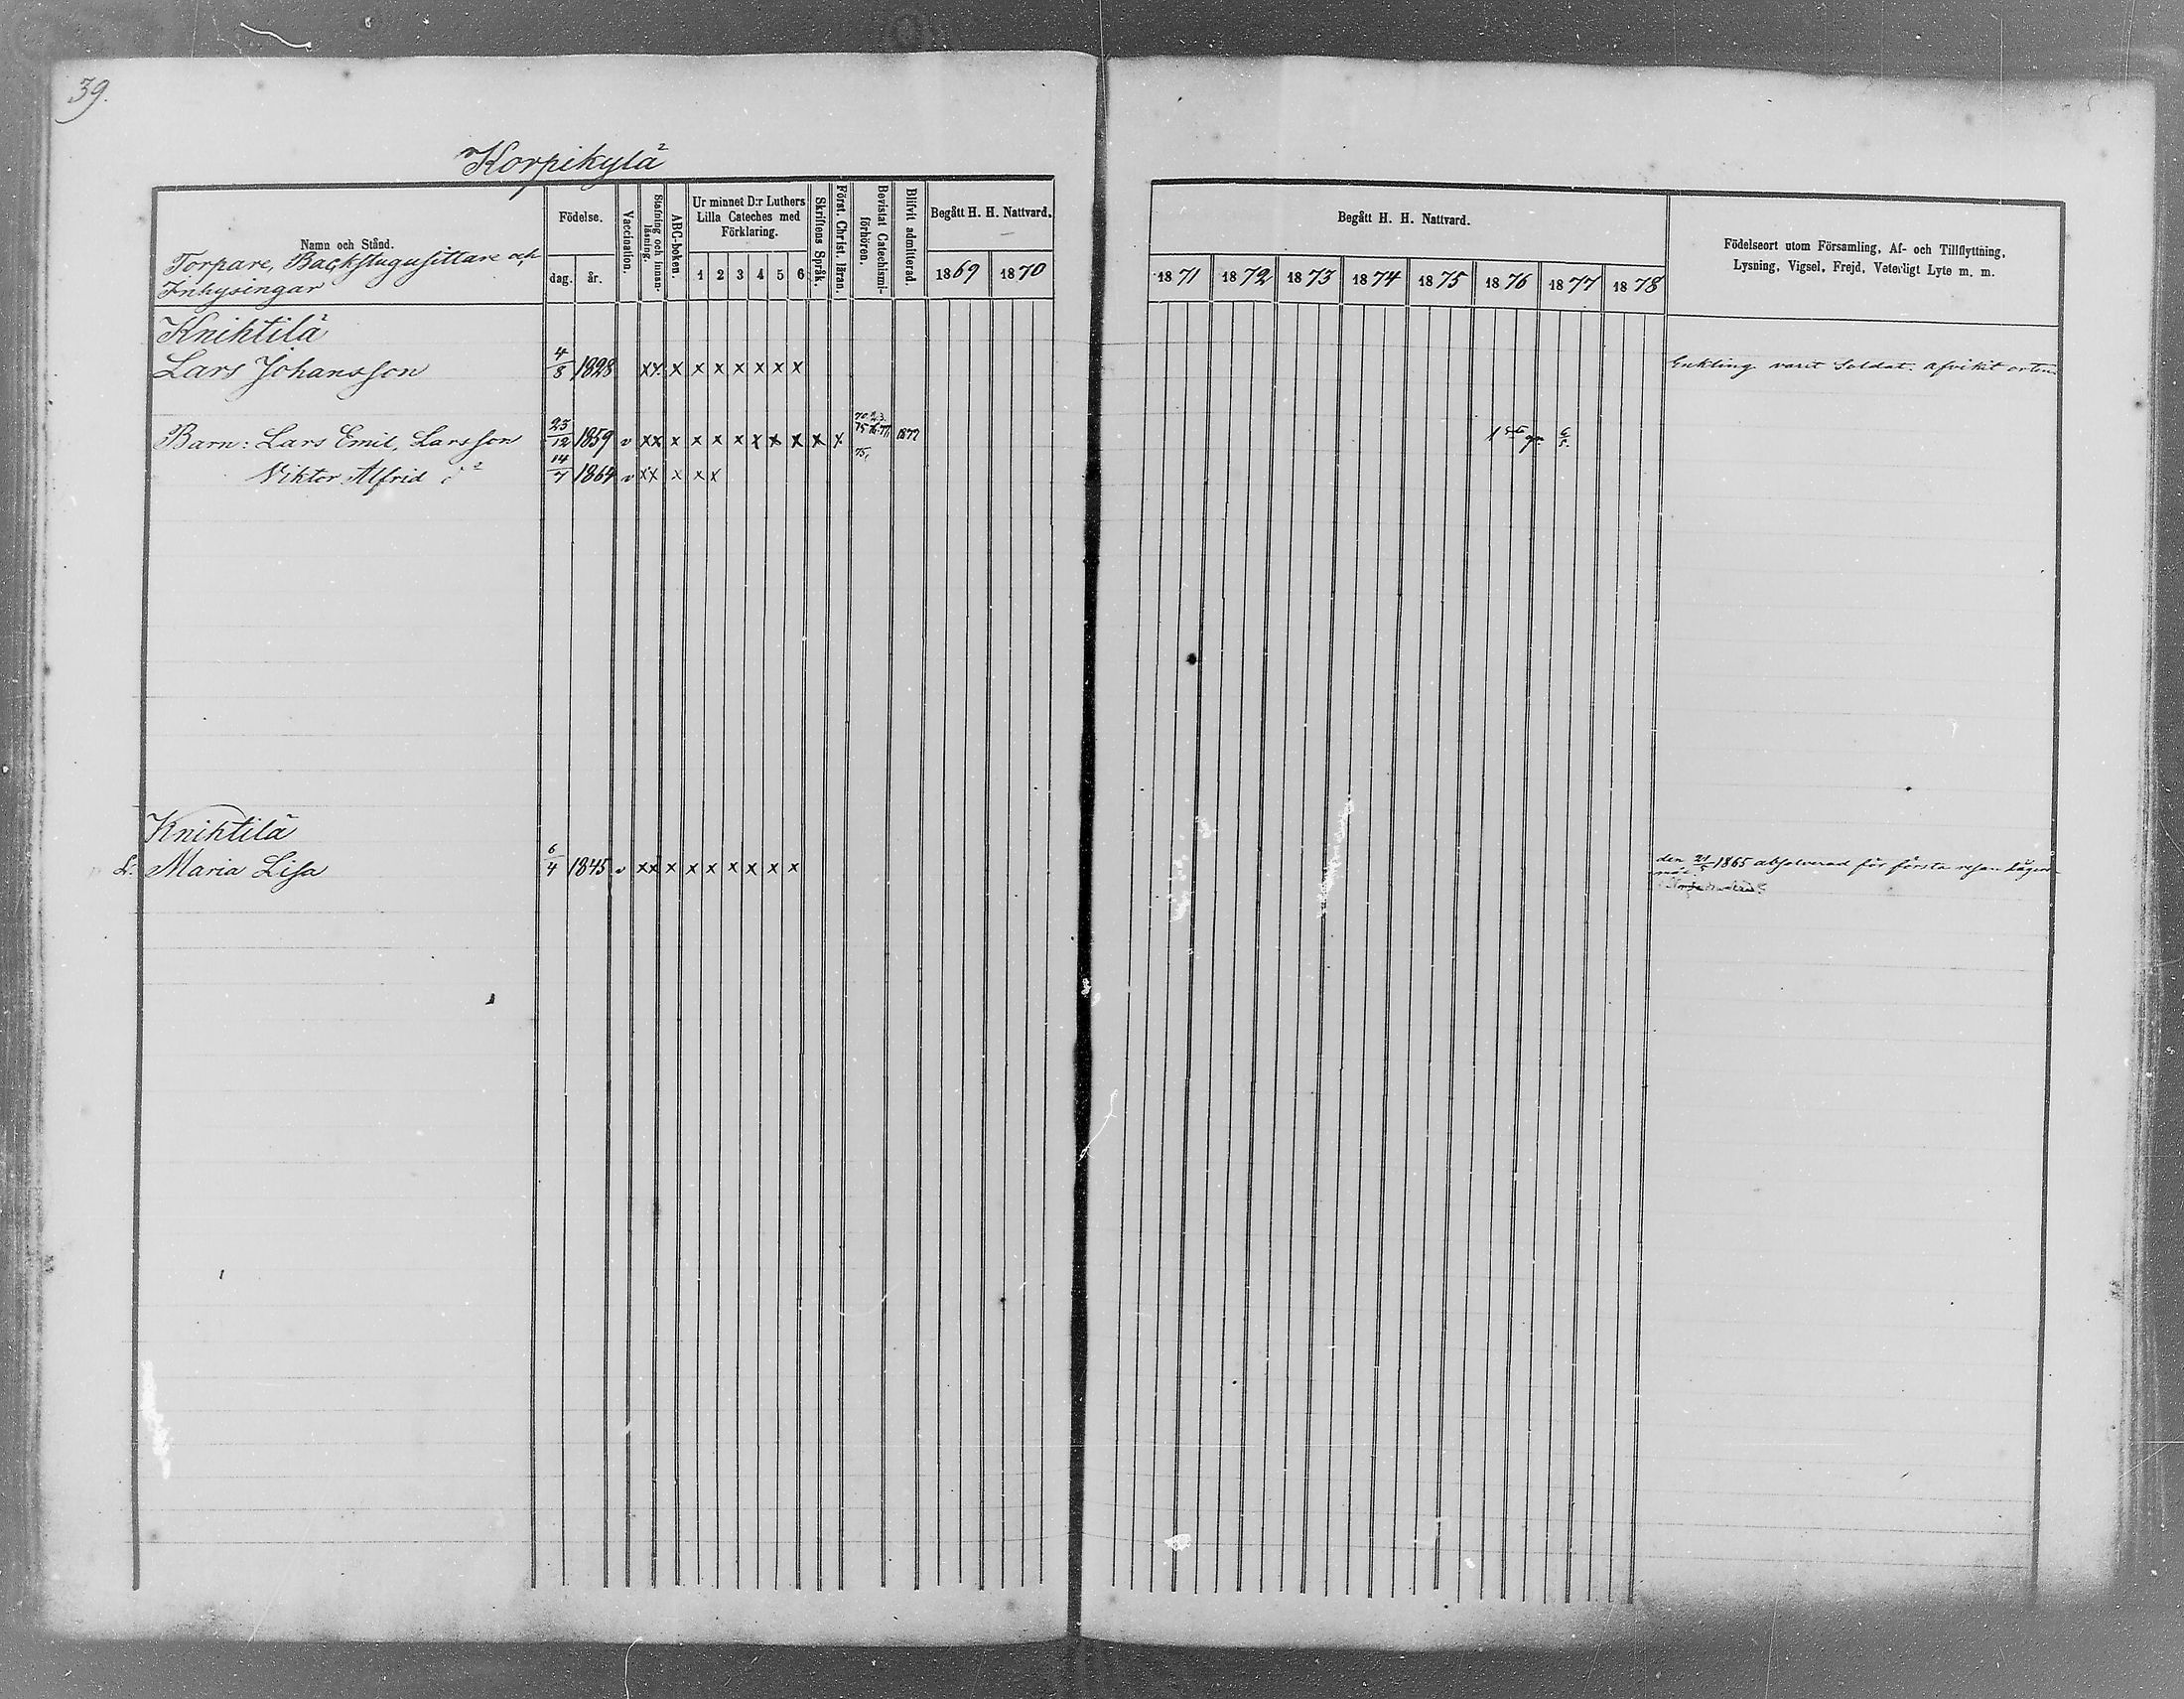 39.
Korpikylä
Namn och Stånd.
Torpare, Backstugusittare och
Inhysingar
Födelse.
dag. år.
Vaccination.
Stafning och innan-
läsning.
ABC-boken.
Ur minnet D:r Luthers
Lilla Cateches med
Förklaring.
1 2 3 4 5 6
Skriftens Språk.
Först. Christ. läran.
Bevistat Catechismi-
förhören.
Blifvit admitterad.
Begått H. H. Nattvard.
1869 1870
Begått H. H. Nattvard.
1871 1872 1873 1874 1875 1876 1877 1878
Födelseort utom Församling, Af- och Tillflyttning,
Lysning, Vigsel, Frejd, Veterligt Lyte m. m.
Knihtilä
Lars Johansson 4/8 1828 xx x x x x x x x Enkling varit Soldat. afvikit orten
Barn: Lars Emil, Larsson 23/12 1859 v xx x x x x x x x x x 75. 76. 77. 1877 1sta g. 6/5
Viktor Alfrid 14/7 1864 v xx x x x 75,
Knihtilä
Maria Lisa 6/4 1845 v xx x x x x x x x den 21/5 1865 absolverad för första resan lägers-
mål